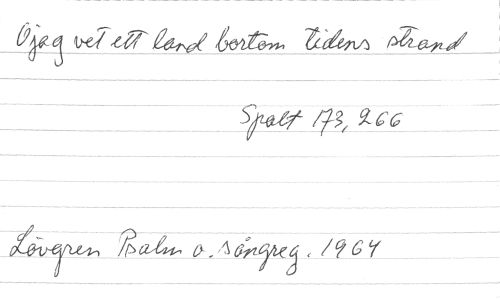 O jag vet ett land bortom tidens strand
Spalt 173, 266
Lövgren Psalm o. sångreg. 1964